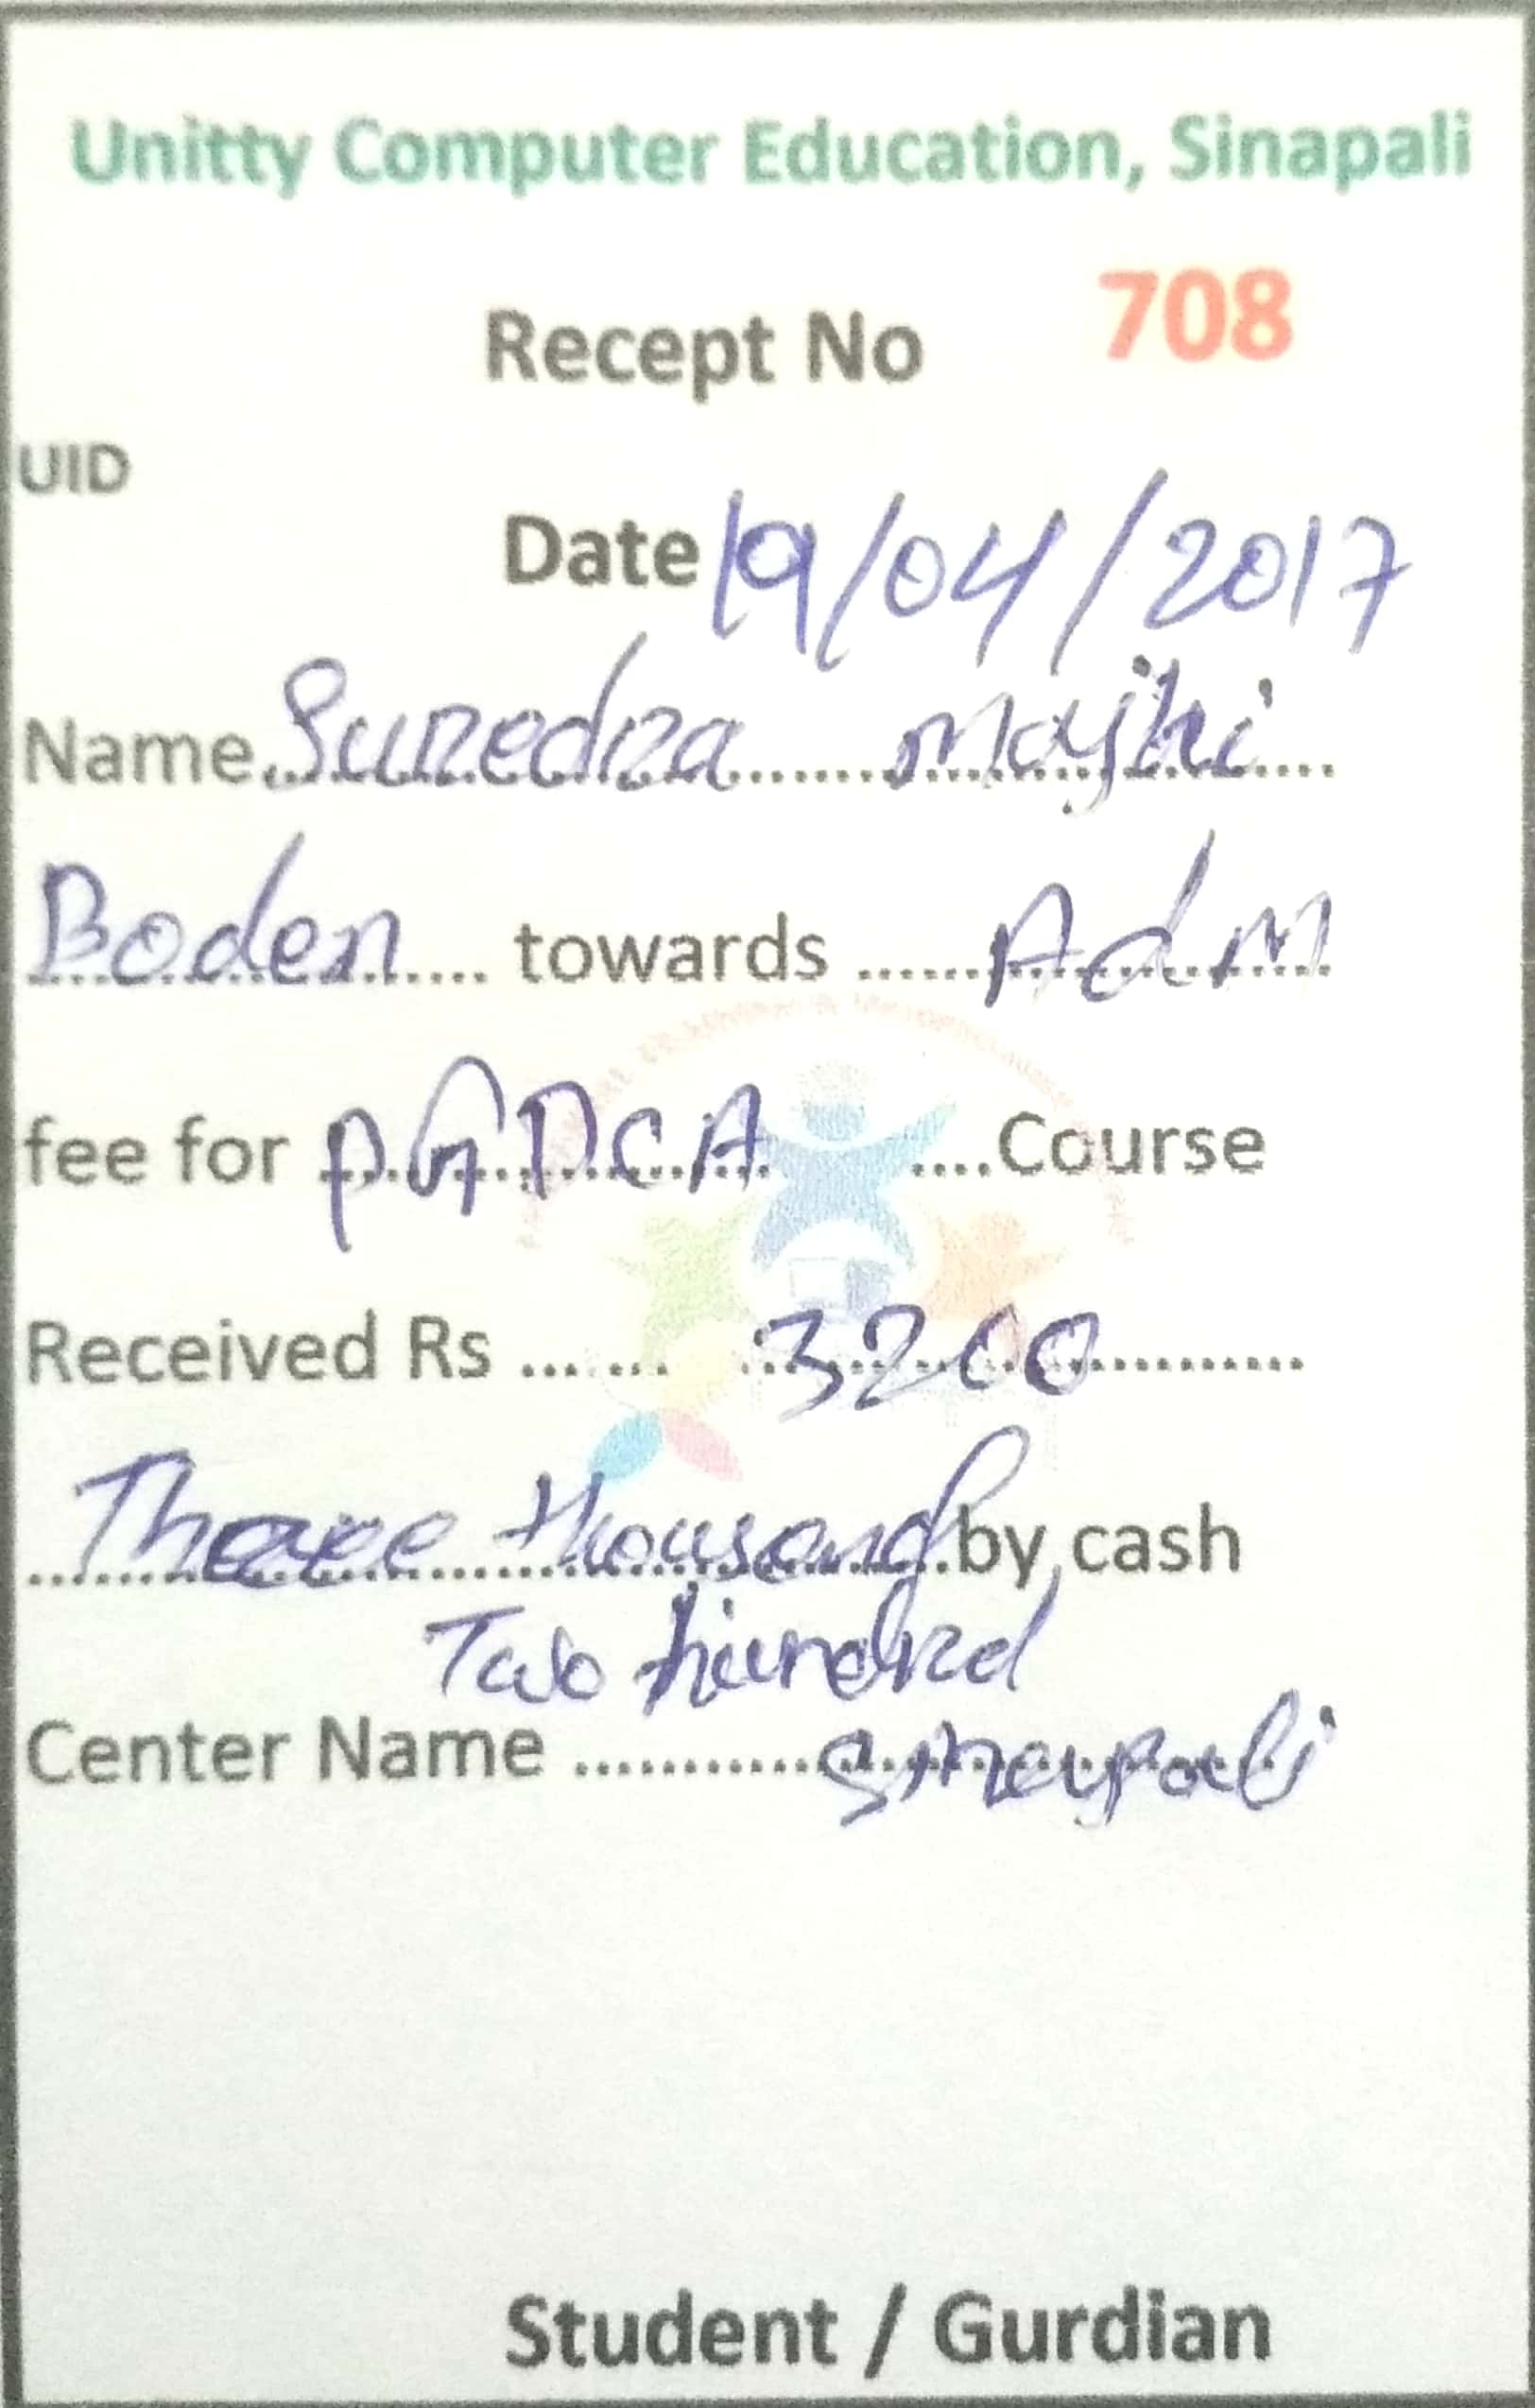 Unitty Computer Education, Sinapali
Recept No 708
UID
Date 19/04/2017
Name Suredra Majhi
Boden towards Adm
fee for PGDCA Course
Received Rs 3200
Three thousand by cash
Two hundrd
Center Name Sinapali
Student / Gurdian